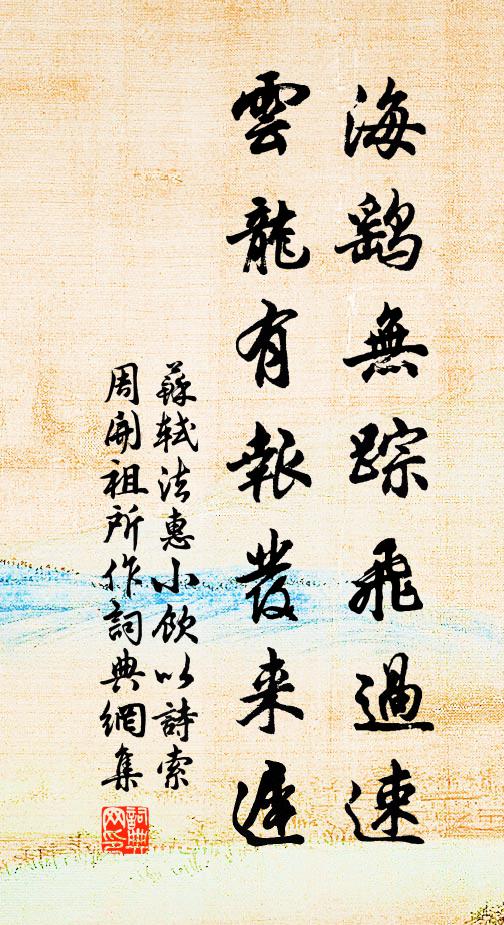 海鷁無踪飛過速
雲龍有報發来遲
蘇軾法惠小飲以詩索
周開祖所作詞典網集
詞典
网